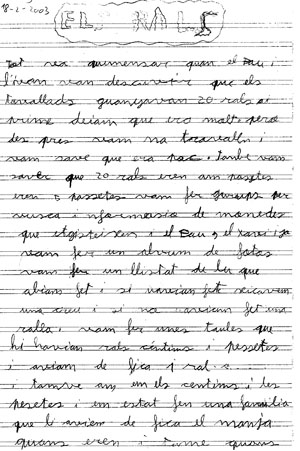 18-2-2003
EL RALS
Tot va començar quan el Pau i
l'ivan van descuvrir que els
treballads guanyavan 20 rals al
prime deiam que era molt pero
des pres vam na
vam save que era poc. també vam
saver que 20 rals eren am pasetes
eren 5 passetes vam fer gurups per
vusca informasia de monedes
que etgisteixen i el Pau, el Xavi i jo
vam fer un alvum de fotos
vam fer un llistat de lu que
abiam fet i si naviam fet
una creu i si no naviam fet una
ralla. vam fer unes taules que
hi havian rals centims i pessetes
i aviam de fica 1 ral
i tamve any em els centims i les
pesetes i em estat fen una familia
que li aviem de fica el manja
quans eren i quans